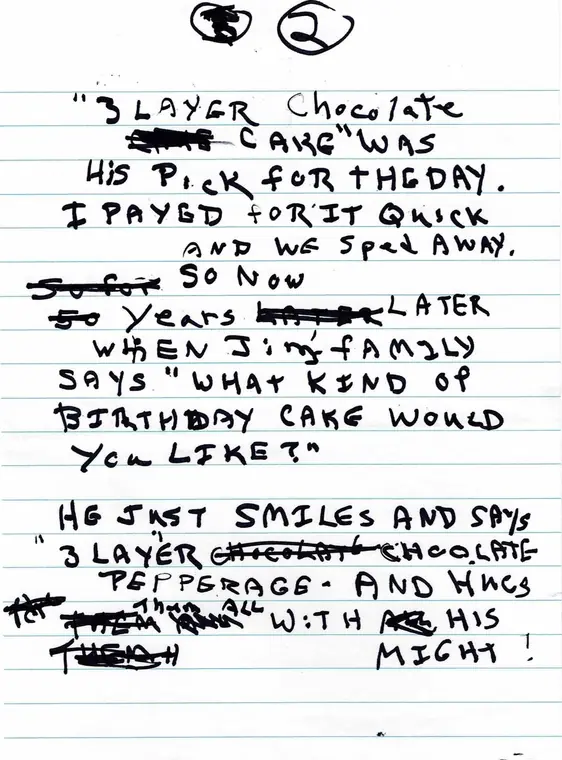 2
"3 LAYER Chocolate
CAKE" WAS
HiS PicK foR THE DAY.
I PAYED foR IT QUICK
AND WE SPed AWAY.
So for SO NOW
50 Years LATER
WHEN Jim's fAMILY
SAYS "WHAT KIND of
BIRTHDAY CAKE WOULD
You LIKE?"
HE JUST SMILES AND SAYS
"3 LAYER chocolate CHOCOLATE
PEPPERAGE - AND HUGS
THEM ALL WiTH HIS
MIGHT!